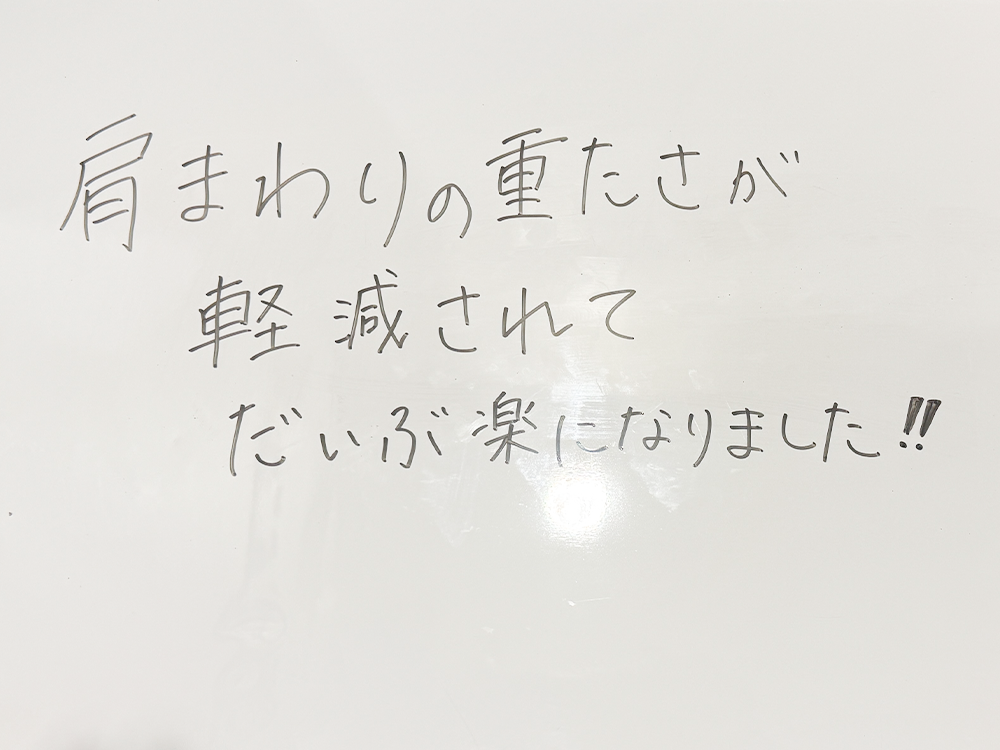 肩まわりの重たさが
軽減されて
だいぶ楽になりました!!